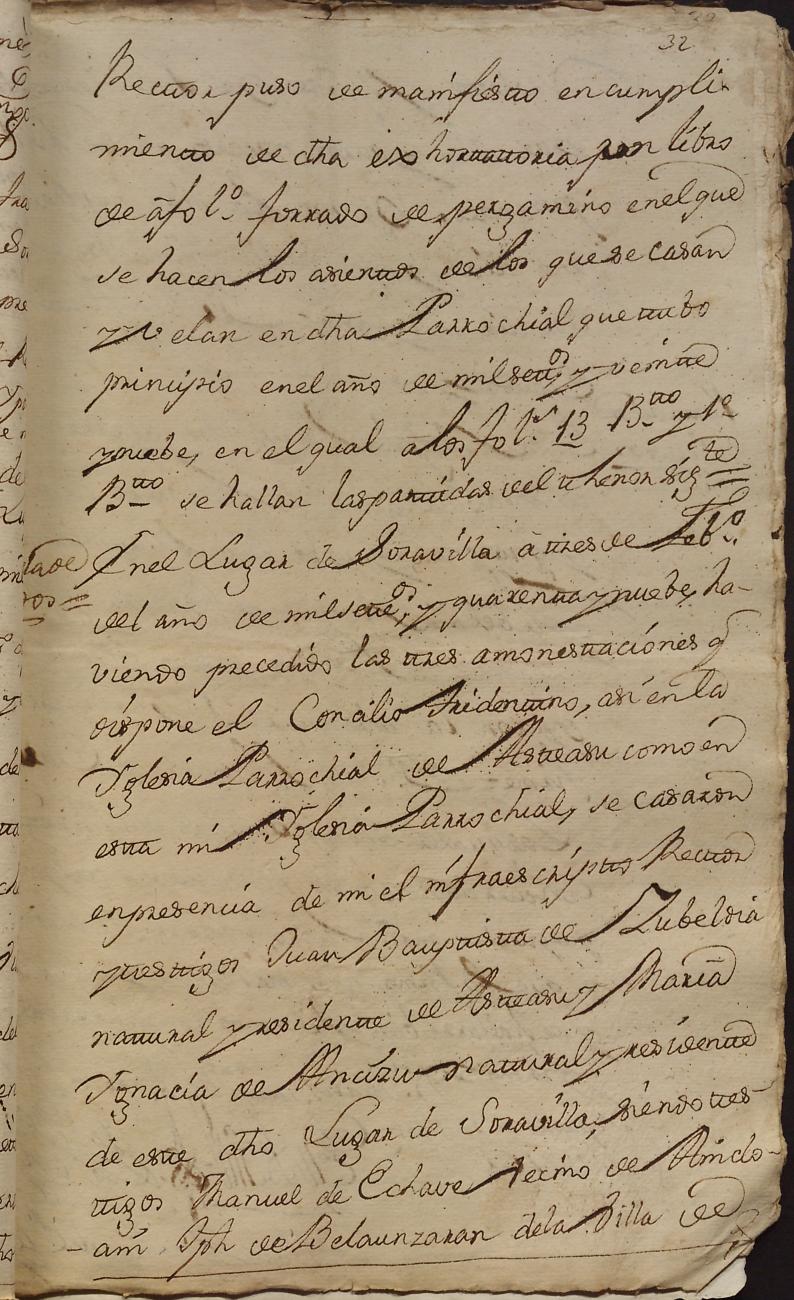 32
Rector puso de manifiesto en cumpli-
miento de dha exhortattoria por libro
de â fol.º forrado de pergamino en el que
se hacen los asientos de los que se casan
y velan en dha Parrochial que tubo
principio en el año de mil settos y veinte
y nuebe, en el qual a los fol.s 13 B.tto y 1º
B.tto se hallan las partidas del thenor sig.te =
En el Lugar de Soravilla â tres de Feb.º
del año de mil sete.os y quarenta y nuebe, ha-
viendo precedido las tres amonestaciones q
dispone el Concilio tridentino, asi en la
Yglesia Parrochial de Asteasu como en
esta mi Yglesia Parrochial, se casaron
en presencia de mi el infraescripto Rector
y testigos Juan Bauptista de Zubeldia
natural y residente de Asteasu y Maria
Ygnacia de Ancizu natural y residente
de este dho Lugar de Soravilla, siendo tes-
tigos Manuel de Echave Vecino de Aindo-
ain Jph de Belaunzaran de la Villa de